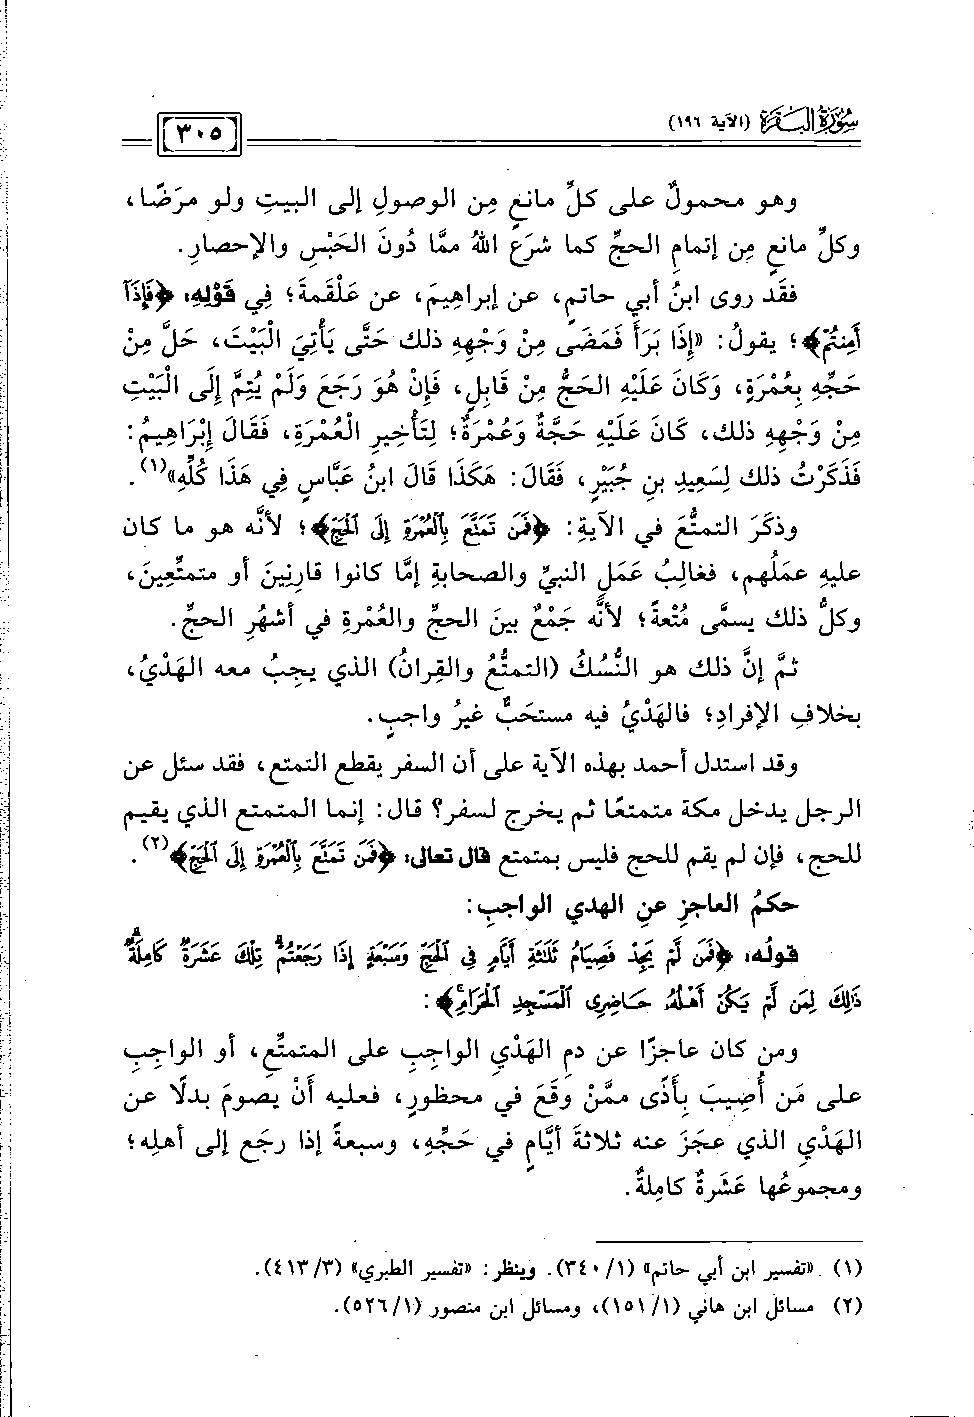 سُورَةُ البَقَرَةِ (الآية ١٩٦)
٣٠٥
وهو محمولٌ على كلِّ مانعٍ مِن الوصولِ إلى البيتِ ولو مرَضًا،
وكلِّ مانعٍ مِن إتمامِ الحجِّ كما شرَعَ اللهُ ممَّا دُونَ الحَبْسِ والإحصارِ.
فقَد روى ابنُ أبي حاتمٍ، عن إبراهيمَ، عن عَلْقمةَ؛ في قَوْلِهِ: ﴿فَإِذَآ
أَمِنتُمْ﴾؛ يقولُ: «إِذَا بَرَأَ فَمَضَى مِنْ وَجْهِهِ ذلك حَتَّى يَأْتِيَ الْبَيْتَ، حَلَّ مِنْ
حَجِّهِ بِعُمْرَةٍ، وَكَانَ عَلَيْهِ الحَجُّ مِنْ قَابِلٍ، فَإِنْ هُوَ رَجَعَ وَلَمْ يُتِمَّ إِلَى الْبَيْتِ
مِنْ وَجْهِهِ ذلك، كَانَ عَلَيْهِ حَجَّةٌ وَعُمْرَةٌ؛ لِتَأْخِيرِ الْعُمْرَةِ، فَقَالَ إِبْرَاهِيمُ:
فَذَكَرْتُ ذلك لِسَعِيدِ بنِ جُبَيْرٍ، فَقَالَ: هَكَذَا قَالَ ابنُ عَبَّاسٍ فِي هَذَا كُلِّهِ»(١).
وذكَرَ التمتُّعَ في الآيةِ: ﴿فَمَن تَمَتَّعَ بِٱلْعُمْرَةِ إِلَى ٱلْحَجِّ﴾؛ لأنَّه هو ما كان
عليهِ عمَلُهم، فغالِبُ عمَلِ النبيِّ والصحابةِ إمَّا كانوا قارِنِينَ أو متمتِّعِينَ،
وكلُّ ذلك يسمَّى مُتْعةً؛ لأنَّه جَمْعٌ بينَ الحجِّ والعُمْرةِ في أشهُرِ الحجِّ.
ثمَّ إنَّ ذلك هو النُّسُكُ (التمتُّعُ والقِرانُ) الذي يجبُ معه الهَدْيُ،
بخلافِ الإفرادِ؛ فالهَدْيُ فيه مستحَبٌّ غيرُ واجبٍ.
وقد استدل أحمد بهذه الآية على أن السفر يقطع التمتع، فقد سئل عن
الرجل يدخل مكة متمتعًا ثم يخرج لسفر؟ قال: إنما المتمتع الذي يقيم
للحج، فإن لم يقم للحج فليس بمتمتع قال تعالى: ﴿فَمَن تَمَتَّعَ بِٱلْعُمْرَةِ إِلَى ٱلْحَجِّ﴾(٢).
حكمُ العاجزِ عنِ الهدي الواجبِ:
قولُه: ﴿فَمَن لَّمْ يَجِدْ فَصِيَامُ ثَلَٰثَةِ أَيَّامٍ فِى ٱلْحَجِّ وَسَبْعَةٍ إِذَا رَجَعْتُمْ تِلْكَ عَشَرَةٌ كَامِلَةٌ
ذَٰلِكَ لِمَن لَّمْ يَكُنْ أَهْلُهُۥ حَاضِرِى ٱلْمَسْجِدِ ٱلْحَرَامِ﴾:
ومن كان عاجزًا عن دمِ الهَدْيِ الواجبِ على المتمتِّعِ، أو الواجبِ
على مَن أُصِيبَ بِأَذًى ممَّنْ وقَعَ في محظورٍ، فعليه أنْ يصومَ بدلًا عن
الهَدْيِ الذي عجَزَ عنه ثلاثةَ أيَّامٍ في حَجِّهِ، وسبعةً إذا رجَع إلى أهلِه؛
ومجموعُها عَشَرةٌ كاملةٌ.
(١) «تفسير ابن أبي حاتم» (١/ ٣٤٠). وينظر: «تفسير الطبري» (٣/ ٤١٣).
(٢) مسائل ابن هاني (١/ ١٥١)، ومسائل ابن منصور (١/ ٥٢٦).